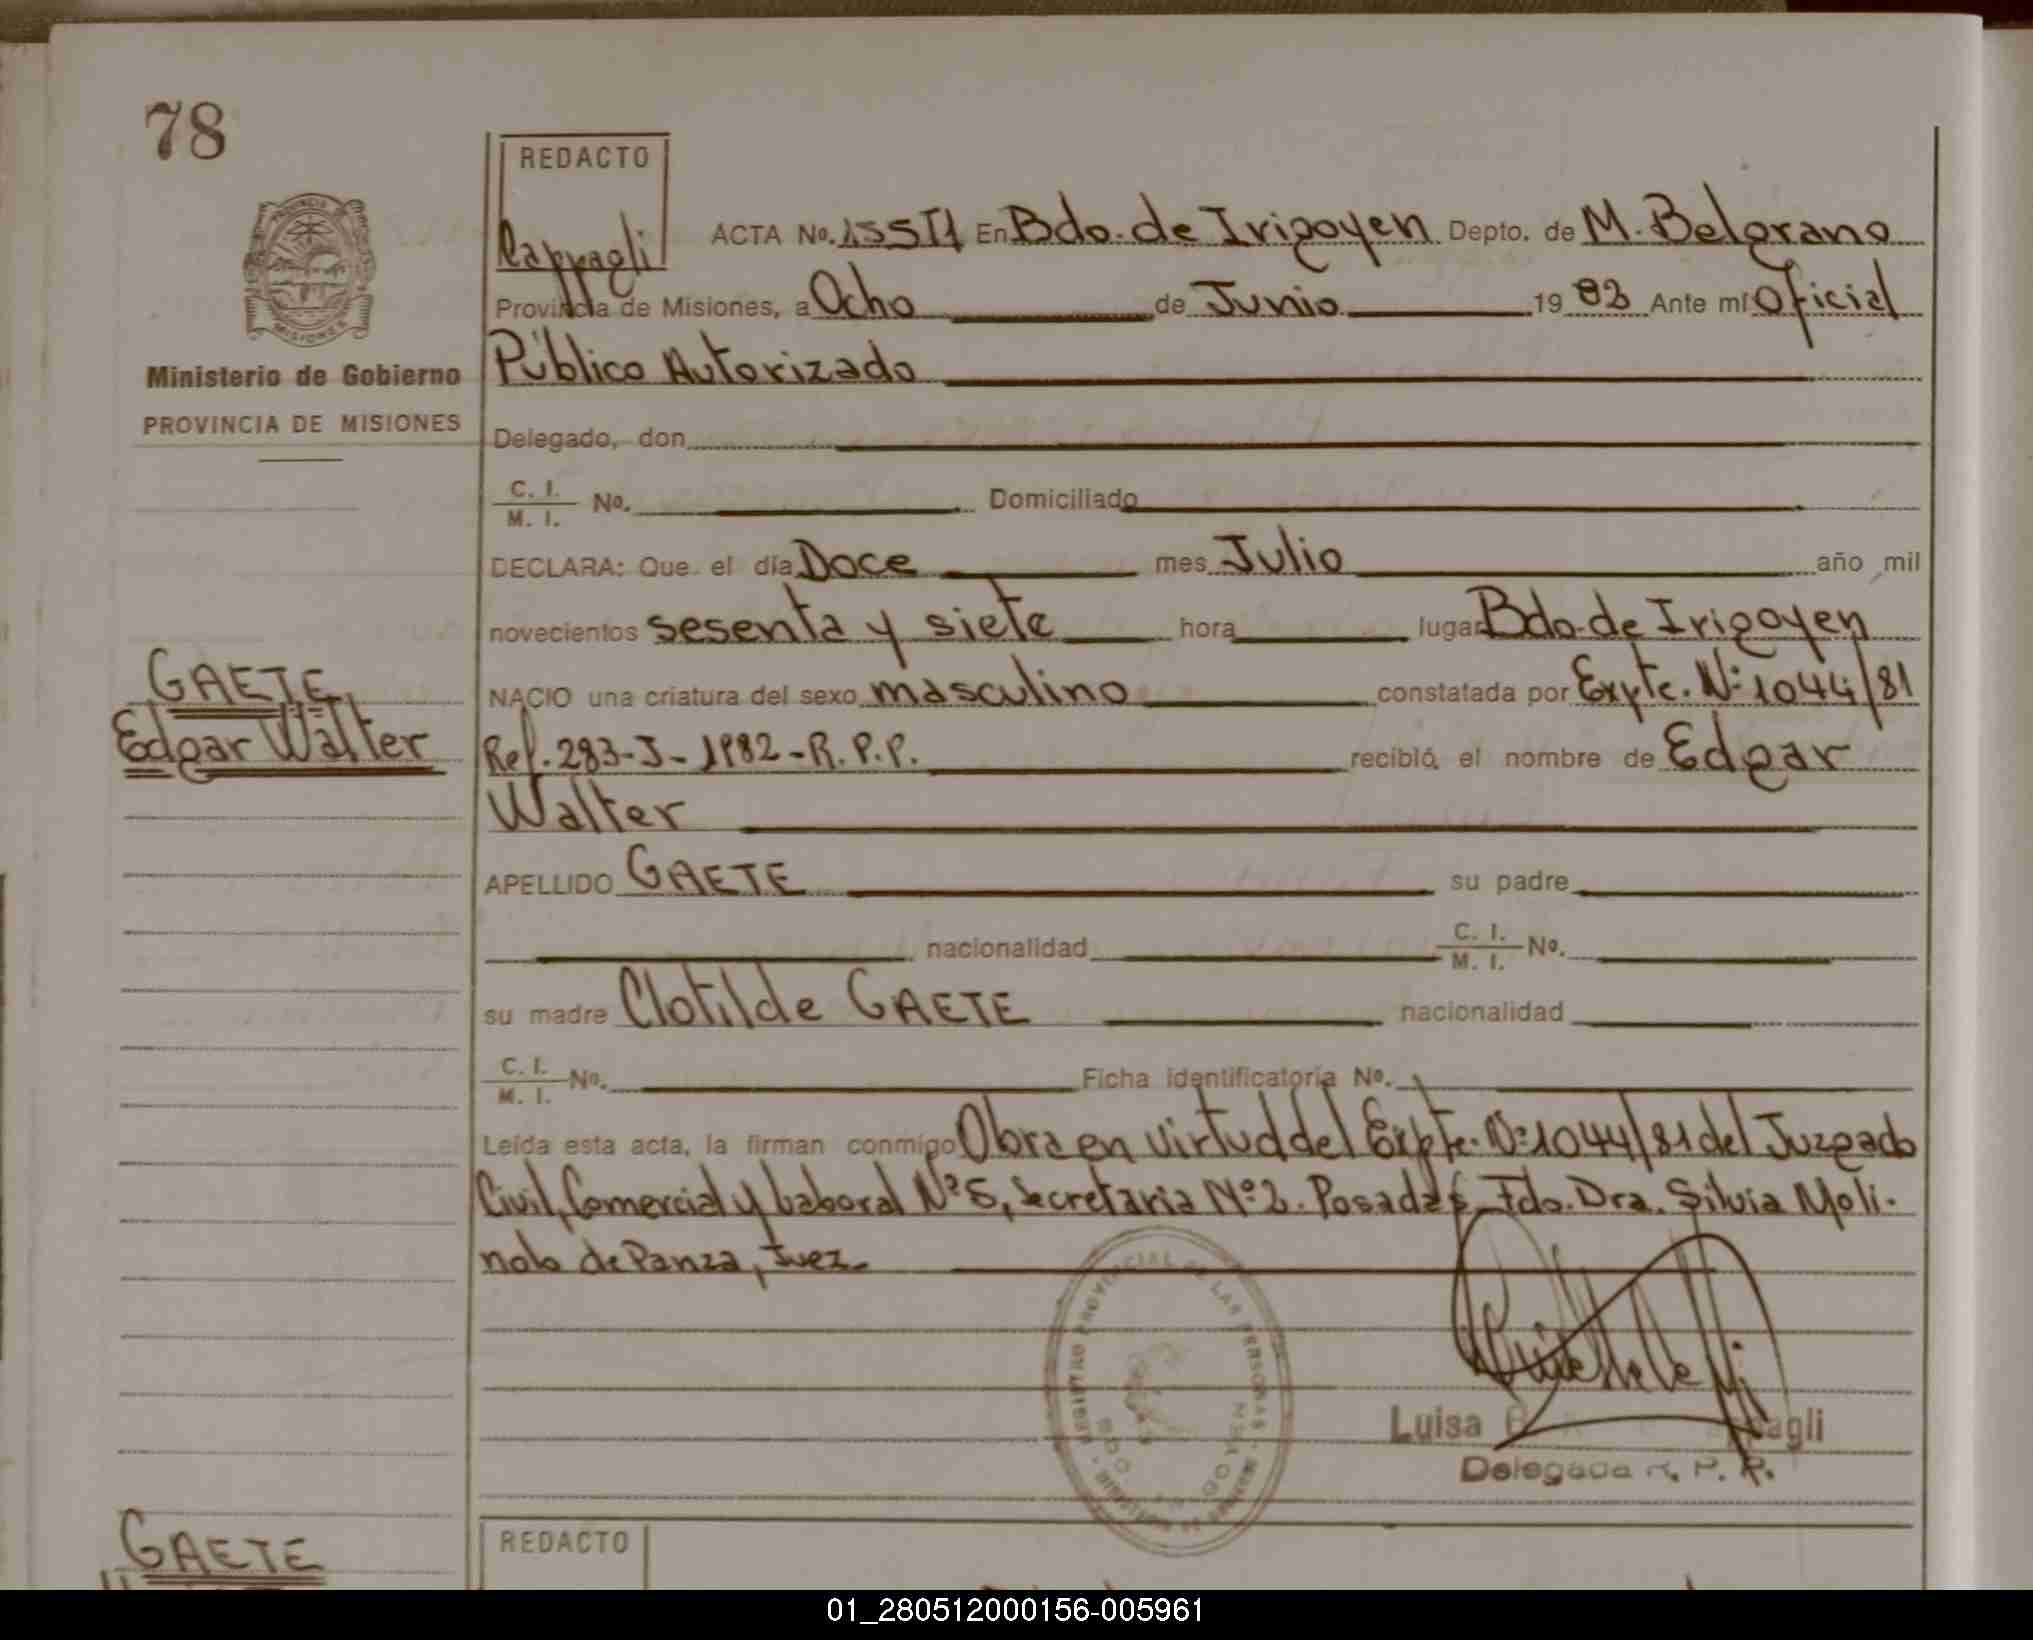 78
REDACTO
Rappagli
ACTA No. 155T1 En Bdo. de Irigoyen Depto. de M. Belgrano
Provincia de Misiones, a Ocho de Junio 1983 Ante mí Oficial
Público Autorizado
Ministerio de Gobierno
PROVINCIA DE MISIONES
Delegado, don
C. I.
M. I. No. Domiciliado
DECLARA: Que el día Doce mes Julio año mil
novecientos sesenta y siete hora lugar Bdo. de Irigoyen
GAETE
Edgar Walter
NACIO una criatura del sexo masculino constatada por Expte. Nº 1044/81
Ref. 283-J-1982-R.P.P. recibió el nombre de Edgar
Walter
APELLIDO GAETE su padre
nacionalidad C. I.
M. I. No.
su madre Clotilde GAETE nacionalidad
C. I.
M. I. No. Ficha identificatoria No.
Leída esta acta, la firman conmigo Obra en virtud del Expte. Nº 1044/81 del Juzgado
Civil, Comercial y Laboral Nº 5, Secretaria Nº 2. Posadas. Fdo. Dra. Silvia Moli-
nolo de Panza, Juez.
REGISTRO PROVINCIAL DE LAS PERSONAS
Luisa
Delegada R. P. P.
GAETE
REDACTO
01_280512000156-005961